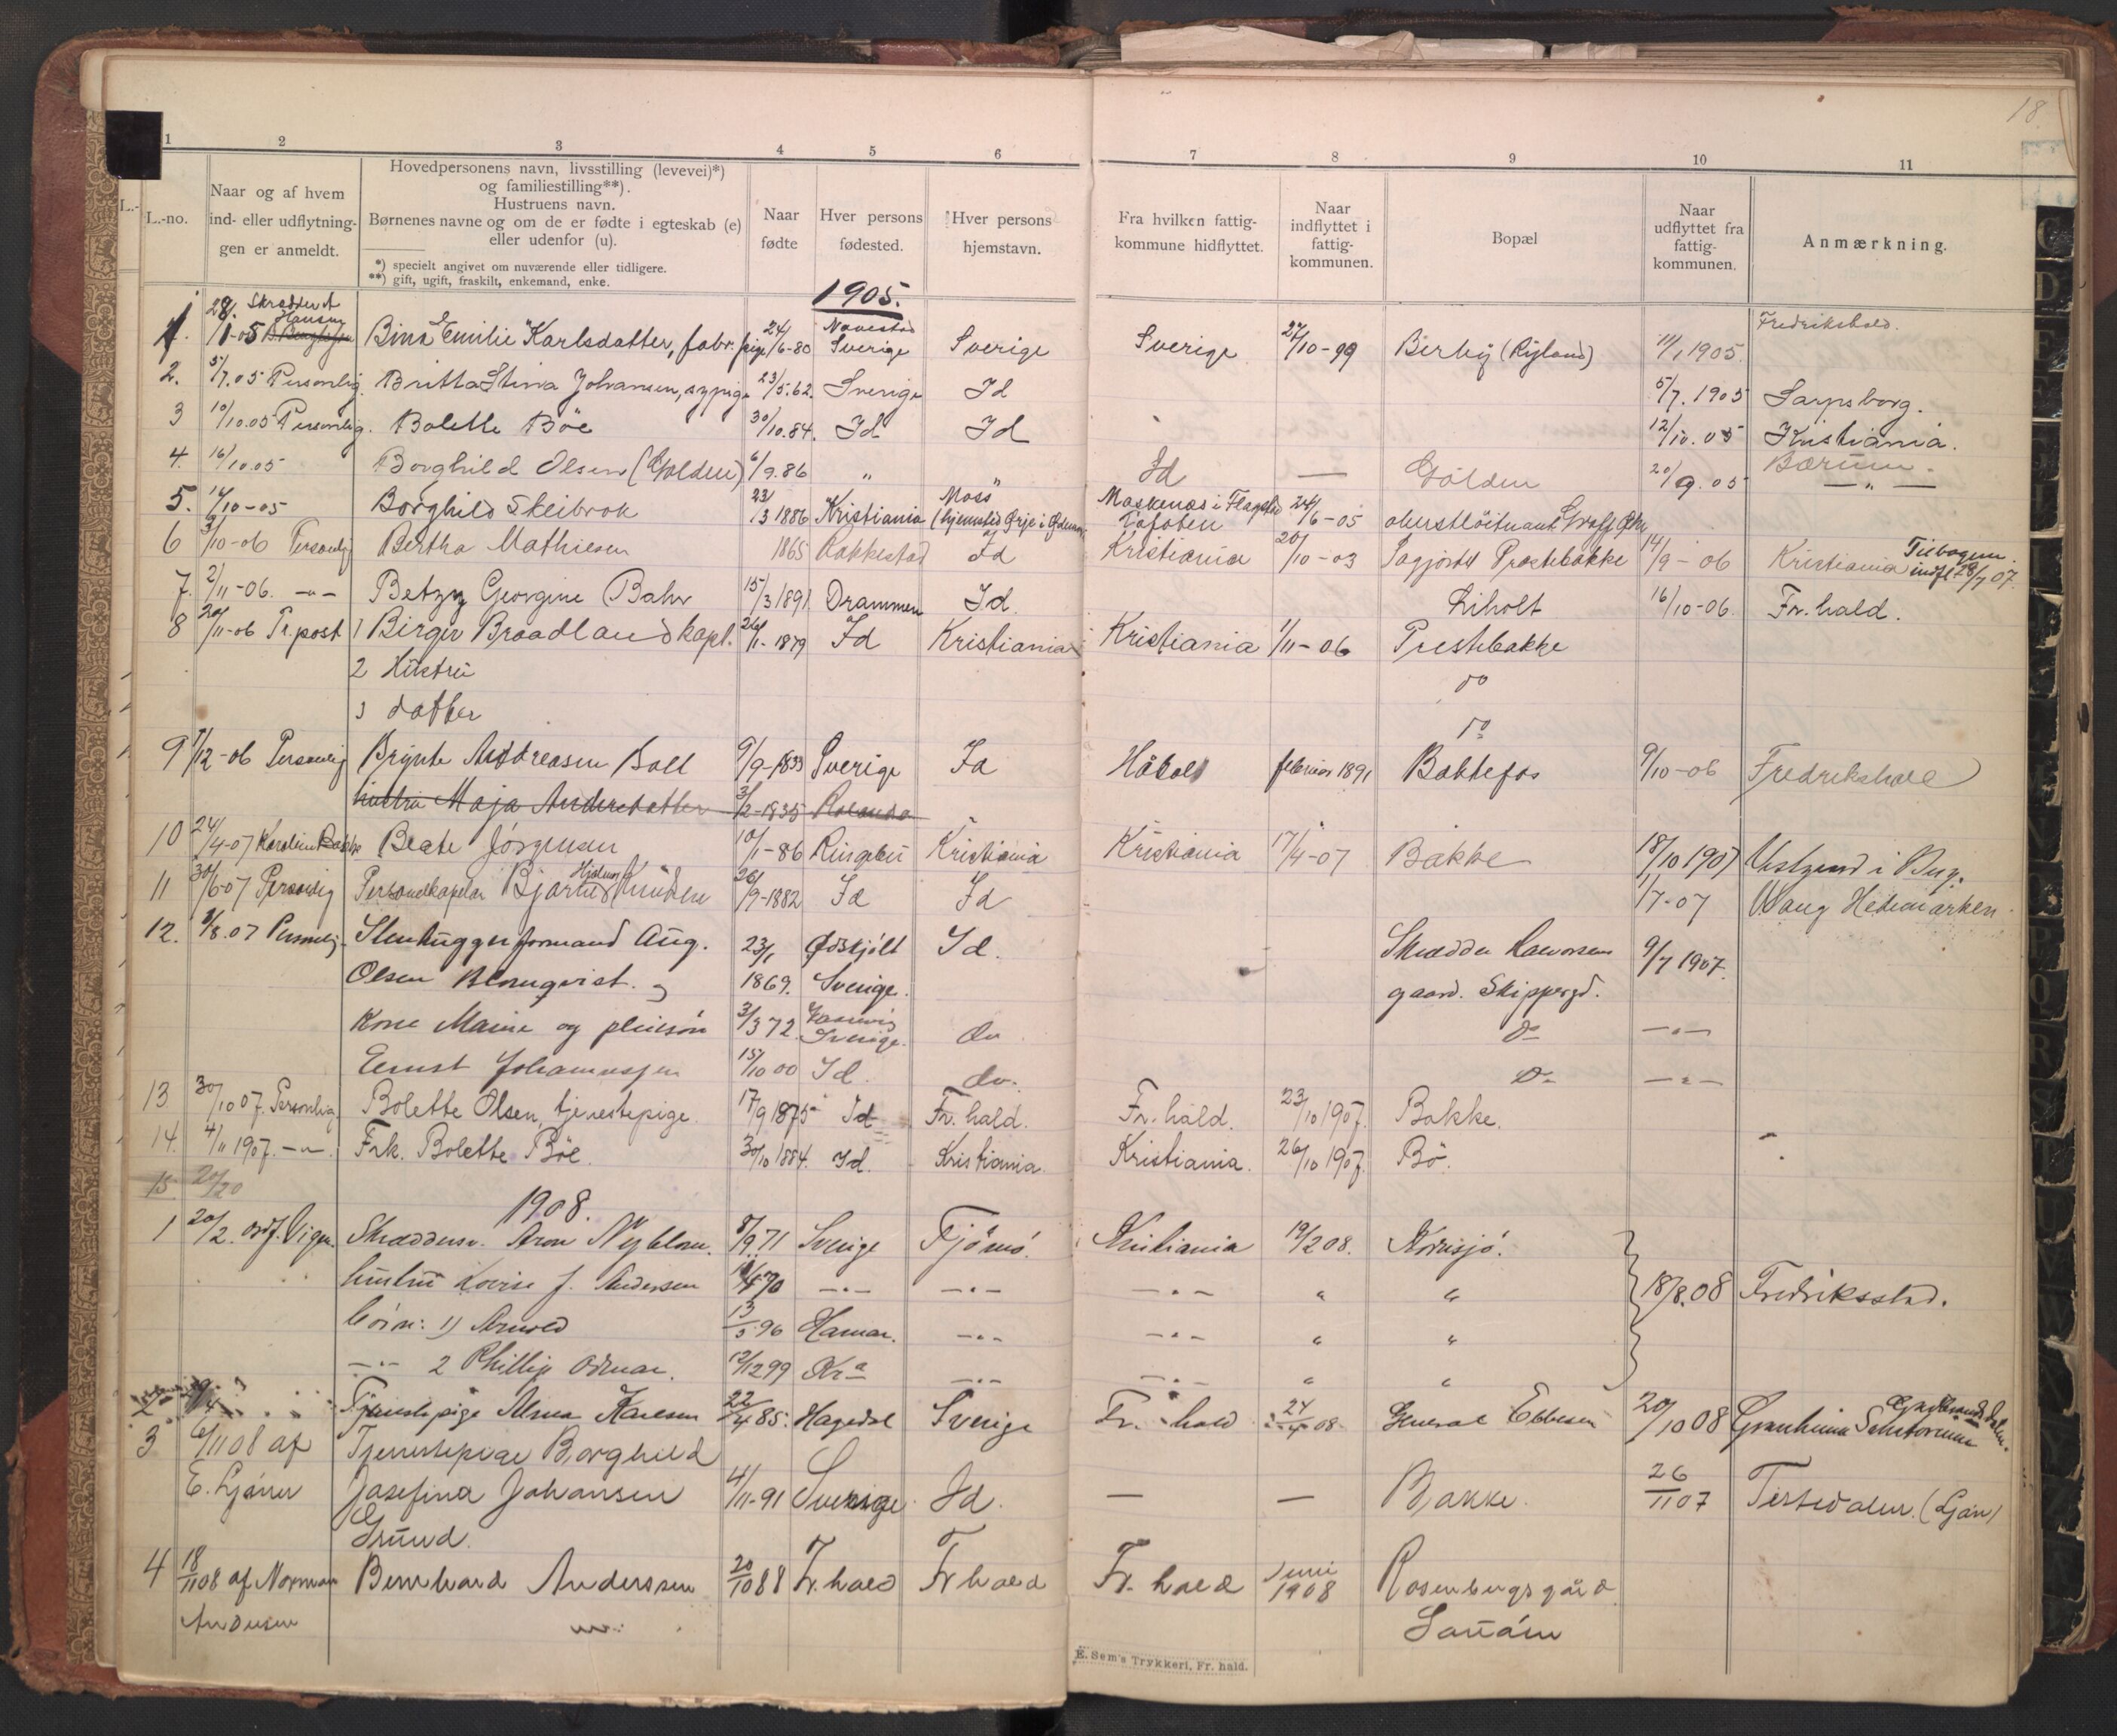 18.
1 2 3 4 5 6 7 8 9 10 11
L.-no.
Naar og af hvem
ind- eller udflytnin-
gen er anmeldt.
Hovedpersonens navn, livsstilling (levevei)*)
og familiestilling**).
Hustruens navn.
Børnenes navne og om de er fødte i egteskab (e)
eller udenfor (u).
*) specielt angivet om nuværende eller tidligere.
**) gift, ugift, fraskilt, enkemand, enke.
Naar
fødte
Hver persons
fødested.
Hver persons
hjemstavn.
Fra hvilken fattig-
kommune hidflyttet.
Naar
indflyttet i
fattig-
kommunen.
Bopæl
Naar
udflyttet fra
fattig-
kommunen.
Anmærkning.
1905.
Skrædder A Hansen Fredrikshald.
1. 28/1-05 Bina Emilie Karlsdatter, fabr. pige 24/6-80 Navestad Sverige Sverige Sverige 27/10-99 Berby (Ryland) 11/1 1905.
2. 5/7.05 Personlig. Britta Stina Johansen, sypige 23/5.62. Sverige Id 5/7. 1905 Sarpsborg.
3 10/10.05 Personlig. Bolette Böe 30/10.84. Id Id 12/10.05 Kristiania.
4. 16/10.05 Borghild Olsen (Gölden) 6/9.86 " Id — Gölden 20/9.05 Bærum.
5. 14/10-05 Borghild Skeibrok 23/3 1886 Kristiania Moss (hjemsted Ørje i Maskenæs i Flagstad Lofoten 24/6-05 oberstlöitnant — " —
6 3/10-06 Personlig Bertha Mathiesen 1865 Rakkestad Id Kristiania 20/10-03 Præstebakke 14/9-06 Kristiania Tilbagein indfl 28/7 07.
7. 2/11-06. -"- Betzy Georgine Bahr 15/3 1891 Drammen Id. Liholt 16/10-06. Fr.hald.
8 20/11-06 Pr. post 1 Birger Braadland kapt. 26/11-1879 Id Kristiania Kristiania 1/11-06 Prestebakke
2 Hustru do
3 datter do
9 7/12-06 Personlig Brynte Andreasen Boll 9/9-1833 Sverige Id Håbøl februar 1891 Bakkefos 9/10-06 Fredrikshald
hustru Maja Andersdatter 3/2-1835
10 24/4-07 Karoline Bakke Beate Jørgensen 10/1-86 Ringebu Kristiania Kristiania 17/4-07 Bakke 18/10 1907
11 30/6-07 Personlig Personelkapelan Bjarne Hjalmar Knudsen 26/9-1882 Id Id 1/7-07 Vang Hedemarken.
12. 8/8.07 Personlig. Stenhuggerformand Aug. 23/1 Ødskjölt Id. Skrædder Halvorsens 9/7 1907.
Olsen Blomqvist. og 1869. Sverige. gaard. Skippergd.
Kone Marie og pleiesön 3/3 72. Sverige. do do —"—
Ernst Johannessen 15/10 00 Id. do. do —"—
13 30/10 07. Personlig Bolette Olsen, tjenestepige. 17/9 1875 Id Fr. hald. Fr. hald. 23/10 1907. Bakke.
14. 4/11 1907. -"- Frk. Bolette Böe. 30/10 1884. Id. Kristiania. Kristiania. 26/10 1907. Bö.
15 20/20
1908.
1 20/2. ordf. Vigen. Skræddersv. Aron Nyblom. 8/9.71 Sverige Tjömö. Kristiania 19/2 08. Kornsjö.
hustru Lovise J. Andersen 70 —"— —"— —"— " " 18/8.08 Fredriksstad.
börn: 1) Arnold 13/5 96 Hamar. —"— —"— " "
—"— 2 Phillip Odmar. 12/12 99 Kr a —"— —"— " "
2 Tjenestepige Alma Karlsen 22/4 85. Hagedal Sverige Fr. hald 24/4 08 General Ebbesen 20/10 08 Granheim Sanatorium
3 6/11 08 af Tjenestepige Borghild
E. Ljöner Josefina Johansen 4/11-91 Sverige. Id. — — Bakke. 26/11 07 Tistedalen. (Gjön)
Grund.
4 18/11 08 af Norman Bernhard Anderssen 20/10 88 Fr. hald Fr hald Fr. hald Juni 1908 Rosenbergsgård
Andersen
E. Sem's Trykkeri, Fr. hald.